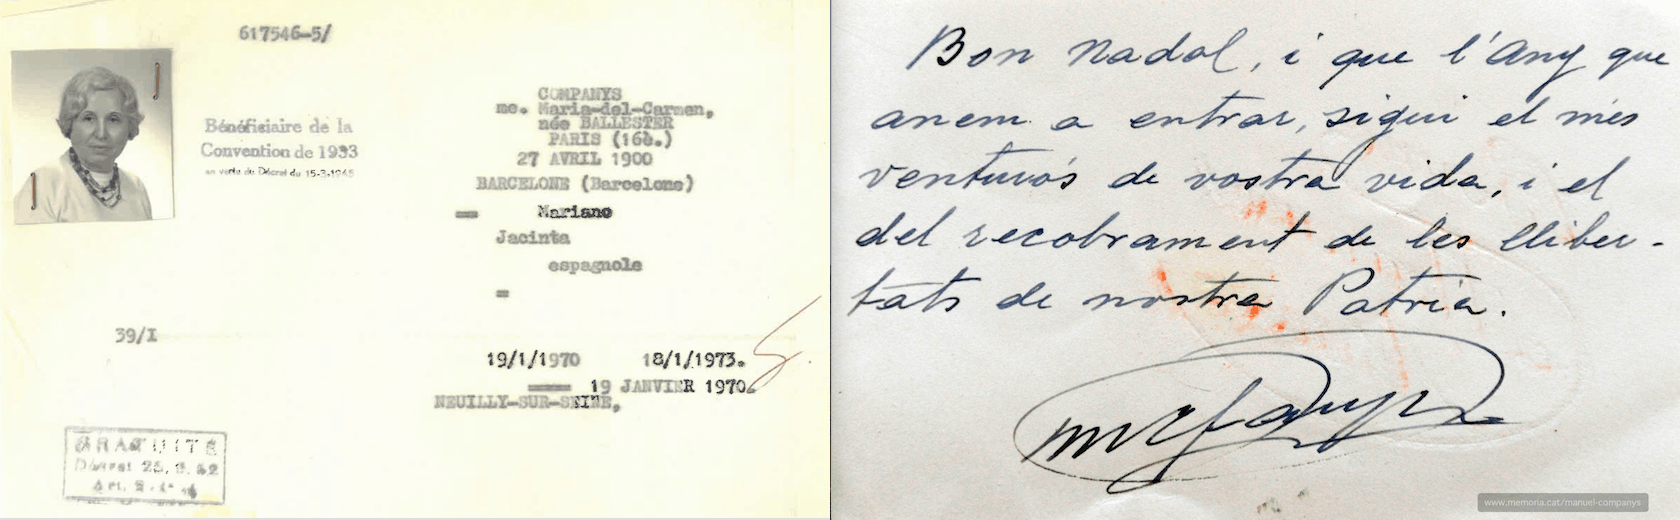 617546-5/
Bénéficiaire de la
Convention de 1933
en vertu du Décret du 15-3-1945
COMPANYS
me. Maria-del-Carmen,
née BALLESTER
PARIS (16è.)
27 AVRIL 1900
BARCELONE (Barcelone)
Mariano
Jacinta
espagnole
39/I
19/1/1970 18/1/1973.
19 JANVIER 1970.
NEUILLY-SUR-SEINE,
GRATUITE
Décret
Art.
Bon Nadal, i que l'Any que
anem a entrar, sigui el més
venturós de vostra vida, i el
del recobrament de les lliber-
tats de nostra Patria.
www.memoria.cat/manuel-companys